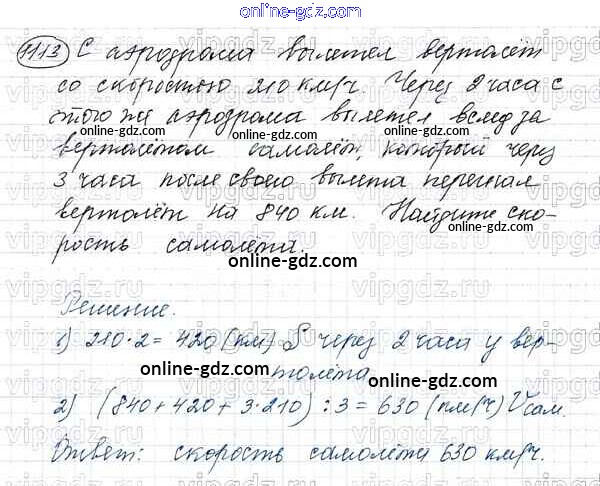 online-gdz.com
1113 С аэродрома вылетел вертолёт
со скоростью 210 км/ч. Через 2 часа с
этого же аэродрома вылетел вслед за
online-gdz.com online-gdz.com
вертолётом самолёт, который через
3 часа после своего вылета перегнал
вертолёт на 840 км. Найдите ско-
рость самолёта.
online-gdz.com
Решение.
1) 210·2=420 (км) S через 2 часа у вер-
толёта
online-gdz.com
2) (840+420+3·210):3=630 (км/ч) Vсам.
online-gdz.com online-gdz.com
Ответ: скорость самолёта 630 км/ч.
online-gdz.com